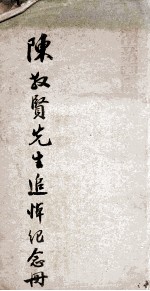 陳敬賢先生追悼紀念冊